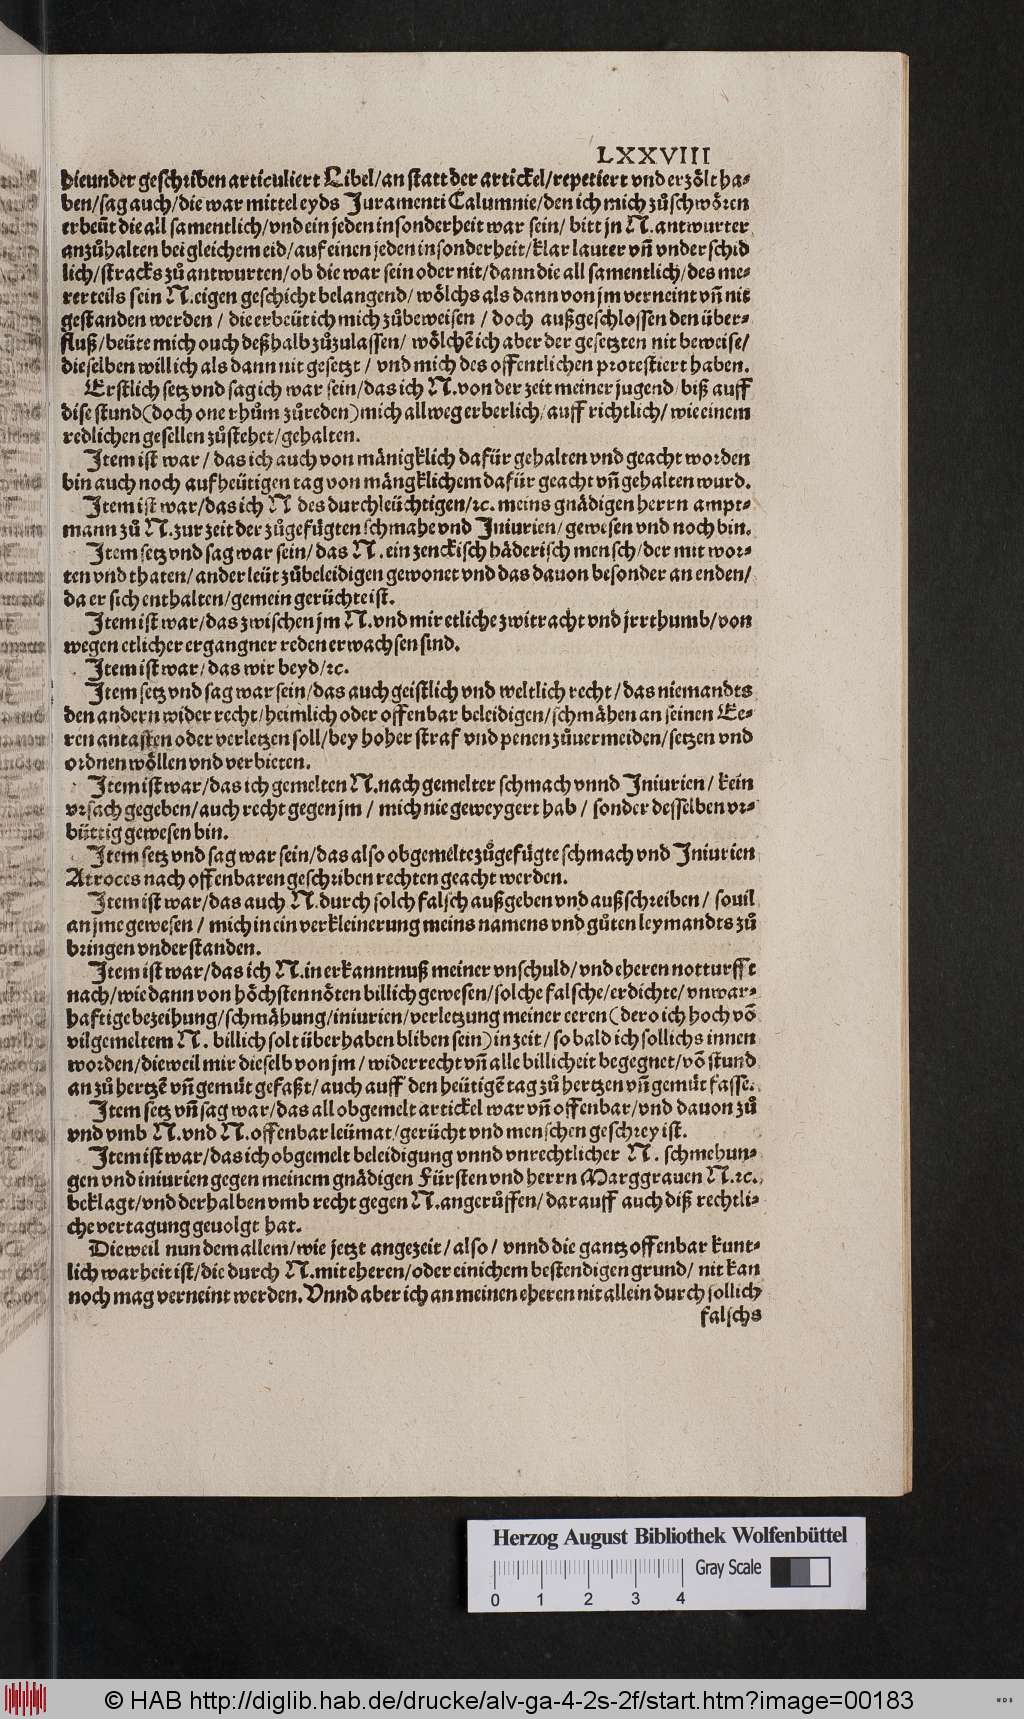 LXXVIII
hieunder geschriben articuliert Libel/an statt der artickel/repetiert vnd erzölt ha⸗
ben/sag auch/die war mittel eyds Juramenti Calumnie/den ich mich zůschwören
erbeüt die all samentlich/vnd ein jeden in sonderheit war sein/ bitt jn N.antwurter
anzůhalten bei gleichem eid/auf einen jeden in sonderheit/klar lauter vñ vnderschid
lich/stracks zů antwurten/ob die war sein oder nit/dann die all samentlich/des me⸗
rerteils sein N.eigen geschicht belangend/ wölchs als dann von jm verneint vñ nit
gestanden werden / die erbeüt ich mich zůbeweisen / doch außgeschlossen den über⸗
fluß/beüte mich ouch deßhalb zůzulassen/ wölchẽ ich aber der gesetzten nit beweise/
dieselben will ich als dann nit gesetzt / vnd mich des offentlichen protestiert haben.
Erstlich setz vnd sag ich war sein/das ich N.von der zeit meiner jugend/biß auff
dise stund(doch one rhům zůreden)mich allweg erberlich/auffrichtlich/wie einem
redlichen gesellen zůstehet/gehalten.
Jtem ist war/das ich auch von mänigklich dafür gehalten vnd geacht worden
bin auch noch auf heütigen tag von mängklichem dafür geacht vñ gehalten wurd.
Jtem ist war/das ich N des durchleüchtigen/ꝛc. meins gnädigen herrn ampt⸗
mann zů N.zur zeit der zůgefügten schmahe vnd Jniurien/gewesen vnd noch bin.
Jtem setz vnd sag war sein/das N.ein zenckisch häderisch mensch/der mit wor⸗
ten vnd thaten/ander leüt zůbeleidigen gewonet vnd das dauon besonder an enden/
da er sich enthalten/gemein gerüchte ist.
Jtem ist war/das zwischen jm N.vnd mir etliche zwitracht vnd jrrthumb/von
wegen etlicher ergangner reden erwachsen sind.
Jtem ist war/das wir beyd/ꝛc.
Jtem setz vnd sag war sein/das auch geistlich vnd weltlich recht/das niemandts
den andern wider recht/heimlich oder offenbar beleidigen/schmähen an seinen Ee⸗
ren antasten oder verletzen soll/bey hoher straf vnd penen zůuermeiden/setzen vnd
ordnen wöllen vnd verbieten.
Jtem ist war/das ich gemelten N.nach gemelter schmach vnnd Jniurien/kein
vrsach gegeben/auch recht gegen jm / mich nie geweygert hab / sonder desselben vr⸗
büttig gewesen bin.
Jtem setz vnd sag war sein/das also obgemelte zůgefügte schmach vnd Jniurien
Atroces nach offenbaren geschriben rechten geacht werden.
Jtem ist war/das auch N.durch solch falsch außgeben vnd außschreiben/ souil
an jme gewesen / mich in ein verkleinerung meins namens vnd gůten leymandts zů
bringen vnderstanden.
Jtem ist war/das ich N.in erkanntnuß meiner vnschuld/vnd eheren notturfft
nach/wie dann von höchsten nöten billich gewesen/solche falsche/erdichte/vnwar⸗
haftige bezeihung/schmähung/iniurien/verletzung meiner eeren(dero ich hoch võ
vilgemeltem N. billich solt überhaben bliben sein)in zeit/so bald ich sollichs innen
worden/dieweil mir dieselb von jm/widerrecht vñ alle billicheit begegnet/võ stund
an zů hertzẽ vñ gemüt gefaßt/auch auff den heütigẽ tag zů hertzen vñ gemüt fasse.
Jtem setz vñ sag war/das all obgemelt artickel war vñ offenbar/vnd dauon zů
vnd vmb N.vnd N.offenbar leümat/gerücht vnd menschen geschrey ist.
Jtem ist war/das ich obgemelt beleidigung vnnd vnrechtlicher N. schmehun⸗
gen vnd iniurien gegen meinem gnädigen Fürsten vnd herrn Marggrauen N.ꝛc.
beklagt/vnd derhalben vmb recht gegen N.angerůffen/darauff auch diß rechtli⸗
che vertagung geuolgt hat.
Dieweil nun dem allem/wie jetzt angezeit/also/ vnnd die gantz offenbar kunt⸗
lich warheit ist/die durch N.mit eheren/oder einichem bestendigen grund/ nit kan
noch mag verneint werden.Vnnd aber ich an meinen eheren nit allein durch sollich
falschs
Herzog August Bibliothek Wolfenbüttel
Gray Scale
0 1 2 3 4
© HAB http://diglib.hab.de/drucke/alv-ga-4-2s-2f/start.htm?image=00183